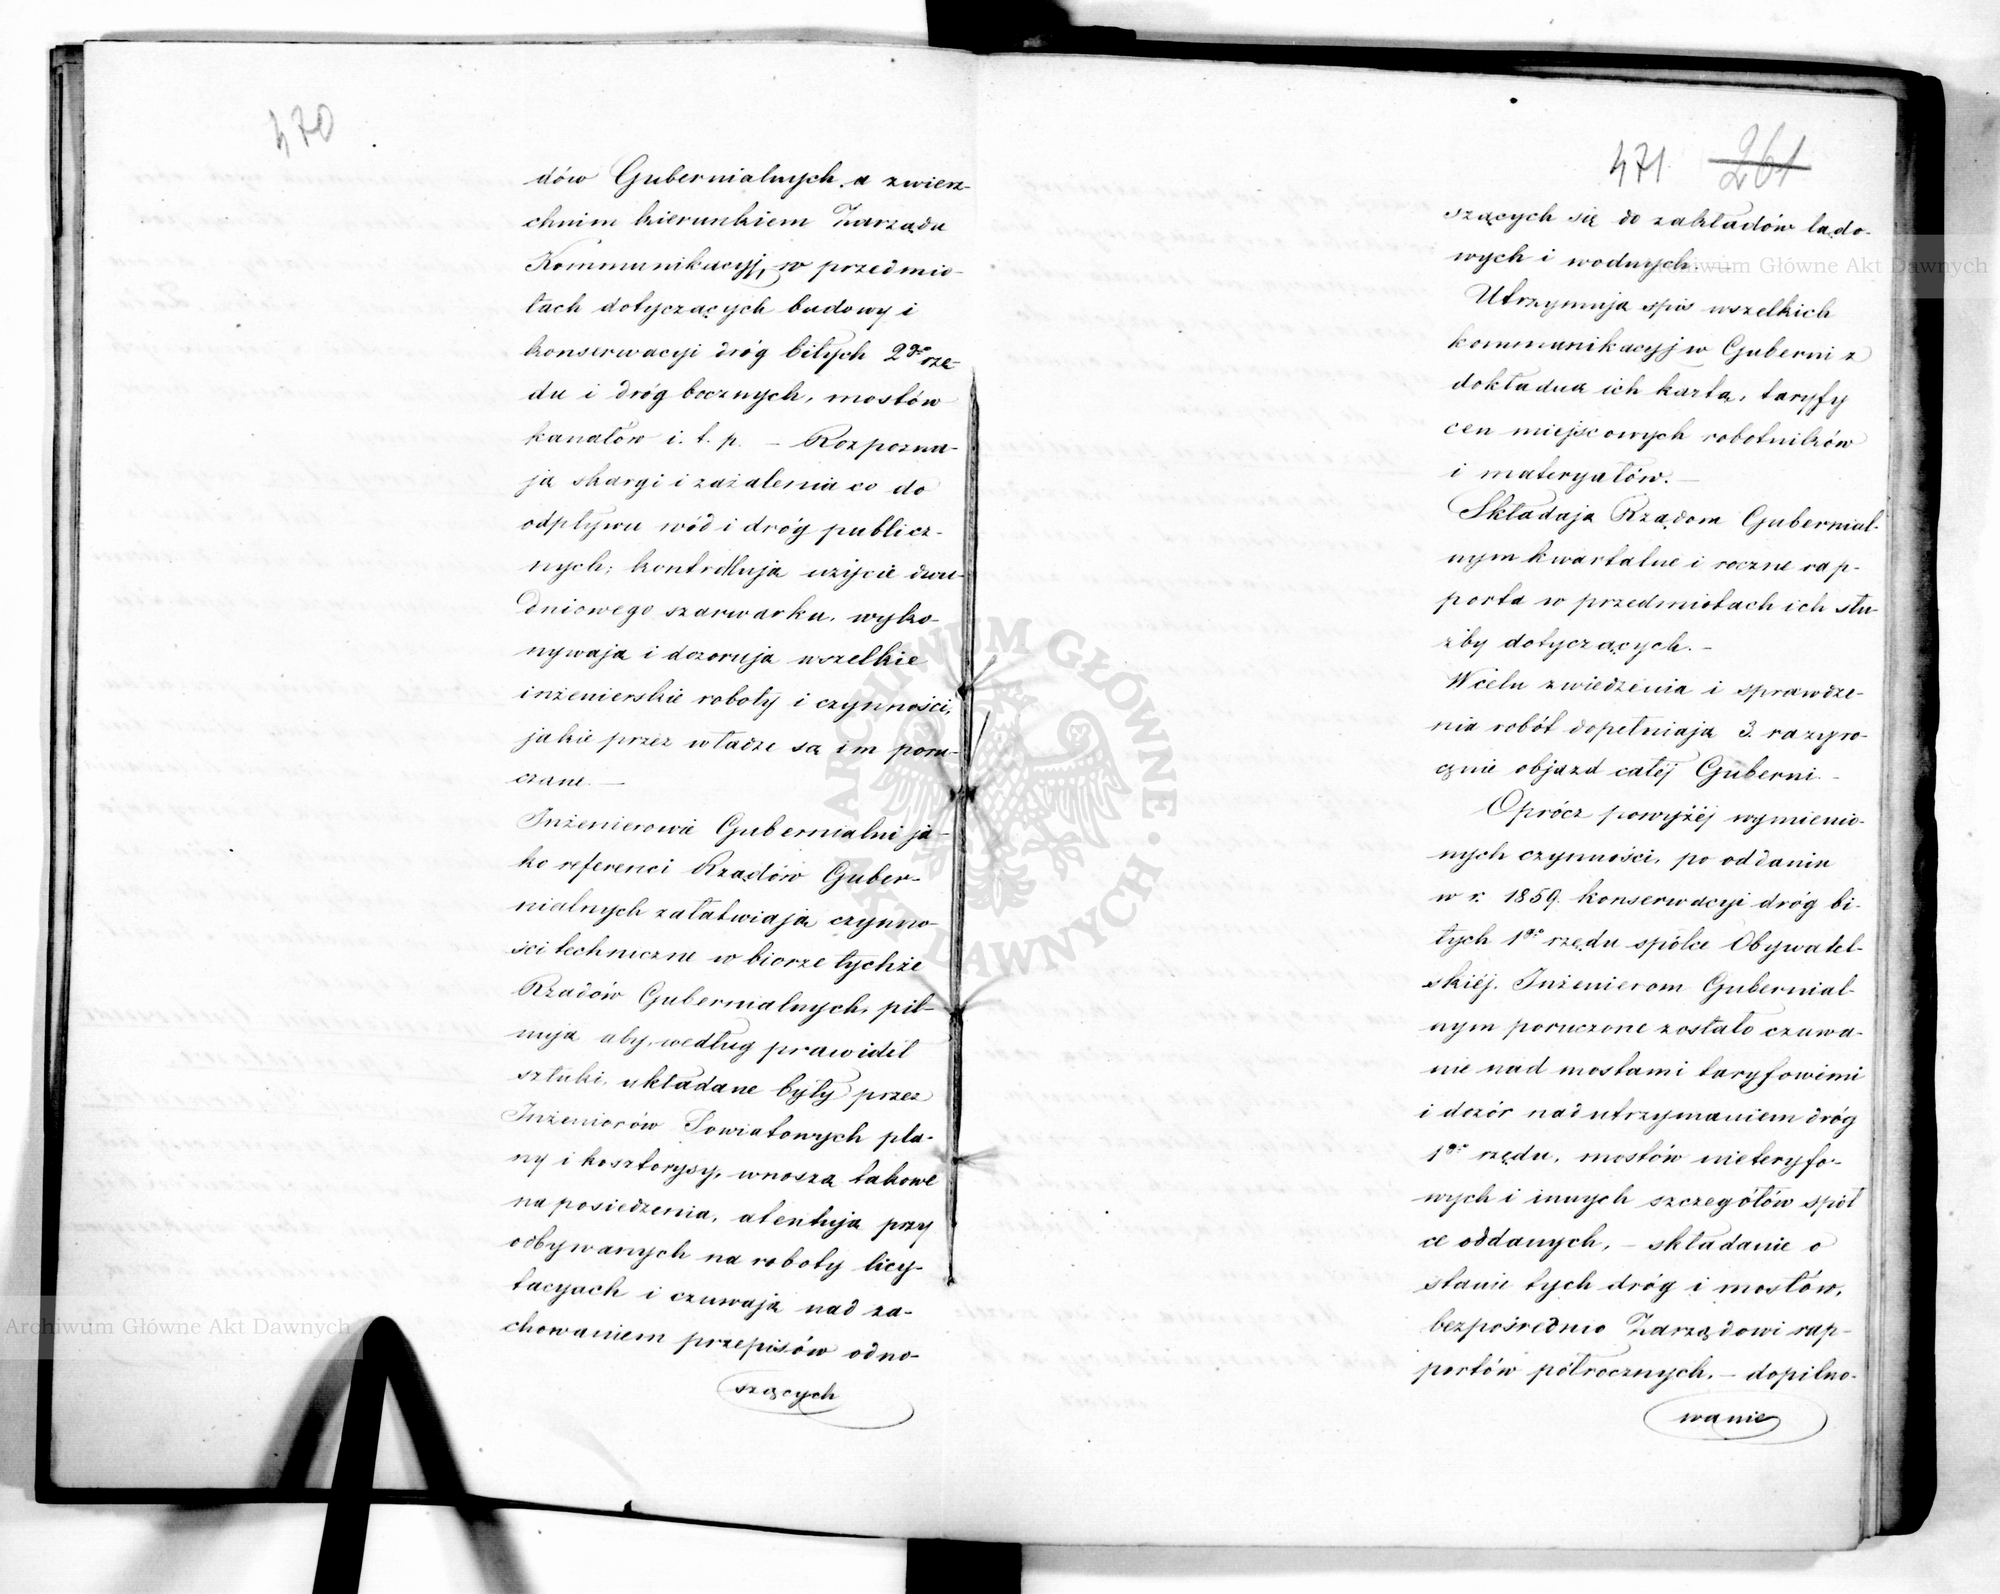 470
dów Gubernialnych. a zwierz-
chnim kierunkiem Zarządu
Kommunikacyj, w przedmio-
tach dotyczących budowy i
konserwacyi dróg bitych 2go rzę-
du i dróg bocznych, mostów
kanałów i. t. p. – Rozpozna-
ją skargi i zażalenia co do
odpływu wód i dróg publicz-
nych; kontrollują użycie dwu-
dniowego szarwarku, wyko-
nywają i dozorują wszelkie
inżenierskie roboty i czynności,
jakie przez władze są im poru-
czane. —
Inżenierowie Gubernialni ja-
ko referenci Rządów Guber-
nialnych załatwiają czynno-
ści techniczne w biórze tychże
Rządów Gubernialnych, pil-
nują aby, według prawideł
sztuki, układane były przez
Inżenierów Powiatowych pla-
ny i kosztorysy, wnoszą takowe
na posiedzenia, atentują przy
odbywanych na roboty licy-
tacyach i czuwają nad za-
chowaniem przepisów odno-
szących
471 261
szących się do zakładów lądo-
wych i wodnych. —
Utrzymują spis wszelkich
kommunikacyj w Guberni z
dokładną ich kartą, taryfy
cen miejscowych robotników
i materyałów. —
Składają Rządom Gubernial-
nym kwartalne i roczne rap-
porta w przedmiotach ich słu-
żby dotyczących. –
W celu zwiedzenia i sprawdze-
nia robót dopełniają 3. razy ro-
cznie objazd całéj Guberni. –
Oprócz powyżéj wymienio-
nych czynności, po oddaniu
w r. 1859. konserwacyi dróg bi-
tych 1go rzędu spółce Obywatel-
skiéj. Inżenierom Gubernial-
nym poruczone zostało czuwa-
nie nad mostami taryfowimi
i dozór nad utrzymaniem dróg
1go rzędu, mostów nietaryfo-
wych i innych szczegółów spół
ce oddanych, – składanie o
stanie tych dróg i mostów,
bezpośrednio Zarządowi rap-
portów półrocznych, – dopilno-
wanie
ARCHIWUM GŁÓWNE · AKT DAWNYCH ·
Archiwum Główne Akt Dawnych
Archiwum Główne Akt Dawnych